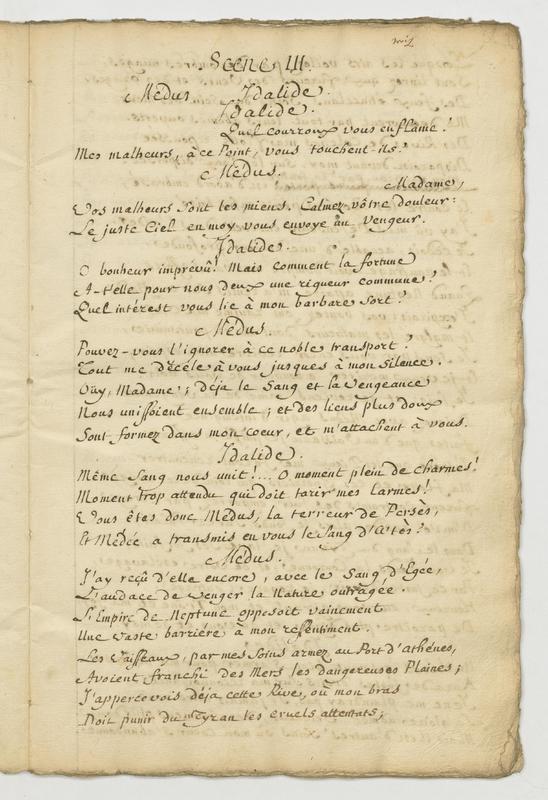 Scene III
Medus. Idalide.
Idalide.
Quel courroux vous enflâme!
Mes malheurs, à ce Point, vous touchent ils?
Medus.
Madame,
Vos malheurs sont les miens. Calmez vôtre douleur:
Le juste Ciel en moy vous envoye un Vengeur.
Idalide.
O bonheur imprévû! Mais comment la fortune
A-t'elle pour nous deux une rigueur commune?
Quel intérest vous lie à mon barbare sort?
Medus.
Pouvez-vous l'ignorer à ce noble transport?
Tout me décéle à vous jusques à mon silence.
Oüy, Madame; déja le Sang et la Vengeance
Nous unissoient ensemble; et des liens plus doux
Sont formez dans mon coeur, et m'attachent à vous.
Idalide.
Même Sang nous unit!... O moment plein de charmes!
Moment trop attendu qui doit tarir mes larmes!
Vous êtes donc Medus, la terreur de Persès,
Et Médée a transmis en vous le Sang d'Ætès?
Medus.
J'ay reçû d'elle encore, avec le Sang d'Egée,
L'audace de venger la Nature outragée.
L'Empire de Neptune opposoit vainement
Une vaste barriére à mon ressentiment.
Les Vaisseaux, par mes soins armez au Port d'athénes,
Avoient franchi des Mers les dangereuses Plaines;
J'appercevois déja cette Rive, où mon bras
Doit punir du Tyran les cruels attentats;